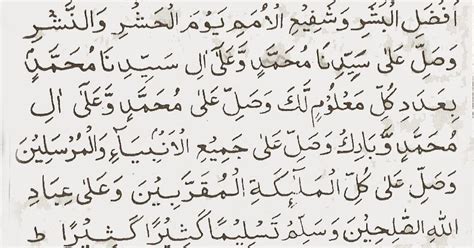 اَفْضَلِ الْبَشَرِ وَشَفِيْعِ الْاُمَمِ يَوْمَ الْحَشْرِ وَالنَّشْرِ
وَصَلِّ عَلٰى سَيِّدِنَا مُحَمَّدٍ وَّعَلٰٓى اٰلِ سَيِّدِنَا مُحَمَّدٍۢ
بِعَدَدِ كُلِّ مَعْلُوْمٍ لَّكَ وَصَلِّ عَلٰى مُحَمَّدٍ وَّعَلٰٓى اٰلِ
مُحَمَّدٍ وَّبَارِكْ وَصَلِّ عَلٰى جَمِيْعِ الْاَنْبِيَآءِ وَالْمُرْسَلِيْنَ
وَصَلِّ عَلٰى كُلِّ الْمَلٰٓئِكَةِ الْمُقَرَّبِيْنَ وَعَلٰى عِبَادِ
اللّٰهِ الصّٰلِحِيْنَ وَسَلِّمْ تَسْلِيْمًا كَثِيْرًا كَثِيْرًا ط